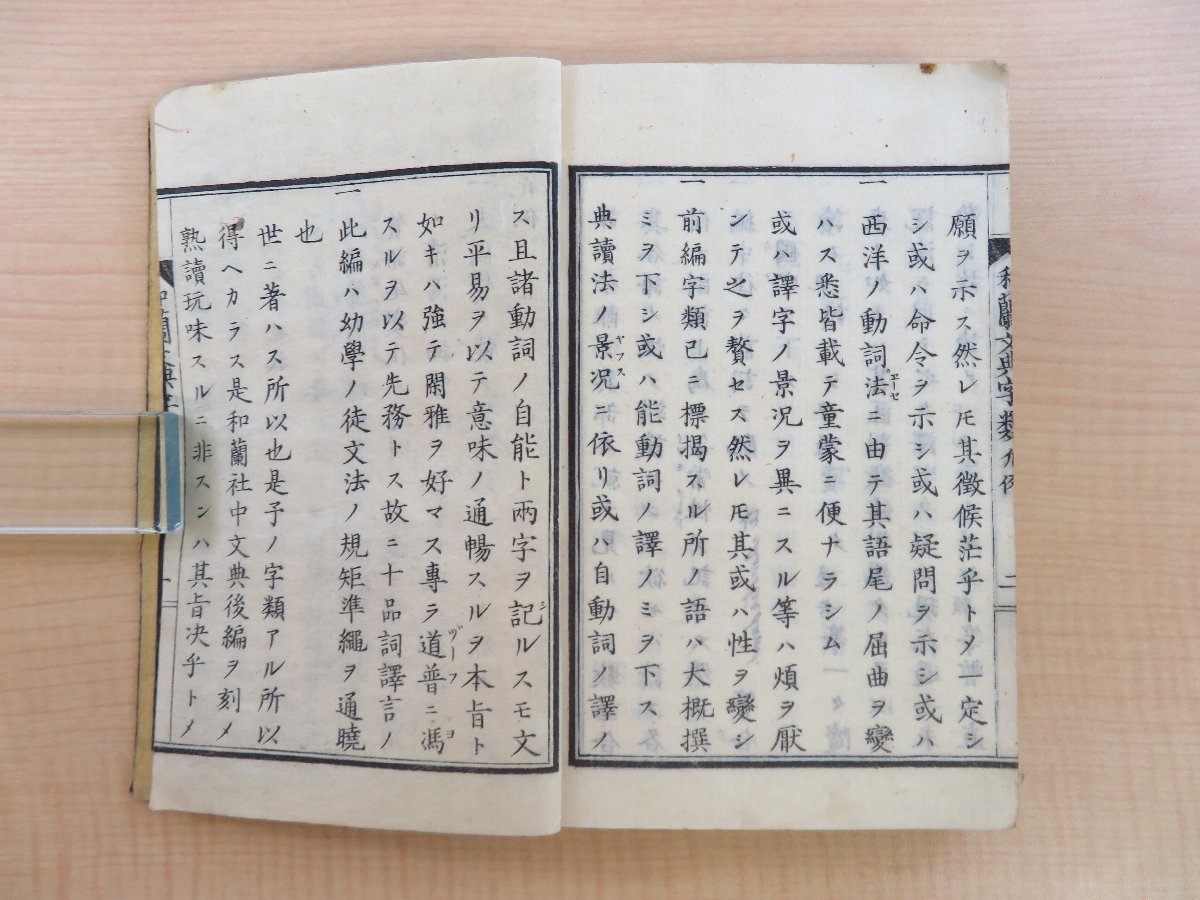 願ヲ示ス然レ𪜈其徴候茫乎トメ一定シ
シ或ハ命令ヲ示シ或ハ疑問ヲ示シ或ハ
一西洋ノ動詞法ニ由テ其語尾ノ屈曲ヲ變
ハス悉皆載テ童蒙ニ便ナラシム
或ハ譯字ノ景况ヲ異ニスル等ハ煩ヲ厭
シテ之ヲ贅セス然レ𪜈其或ハ性ヲ變シ
一前編字類已ニ標揭スル所ノ語ハ大概撰
ミヲ下シ或ハ能動詞ノ譯ノミヲ下ス
典讀法ノ景况ニ依リ或ハ自動詞ノ譯ノ
ス且諸動詞ノ自能ト兩字ヲ記ルスモ文
リ平易ヲ以テ意味ノ通暢スルヲ本旨ト
如キハ強テ閑雅ヲ好マス專ラ道普ニ馮
スルヲ以テ先務トス故ニ十品詞譯言ノ
一此編ハ幼學ノ徒文法ノ規矩準繩ヲ通曉
也
世ニ著ハス所以也是予ノ字類アル所以
得ヘカラス是和蘭社中文典後編ヲ刻メ
熟讀玩味スルニ非スンハ其旨决乎トメ